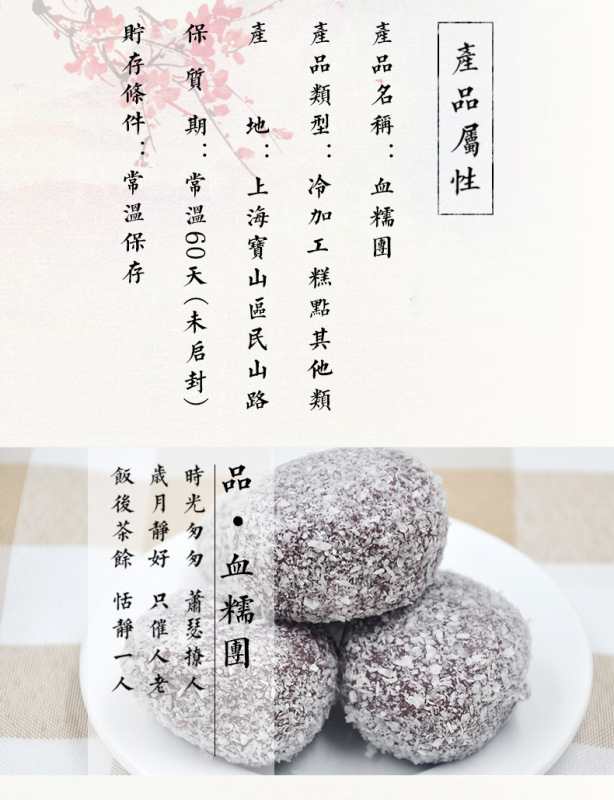 產品屬性
產品名稱：血糯團
產品類型：冷加工糕點其他類
產地：上海寶山區民山路
保質期：常溫60天(未启封)
貯存條件：常溫保存
品•血糯團
時光匆匆 蕭瑟撩人
歲月靜好 只催人老
飯後茶餘 恬靜一人